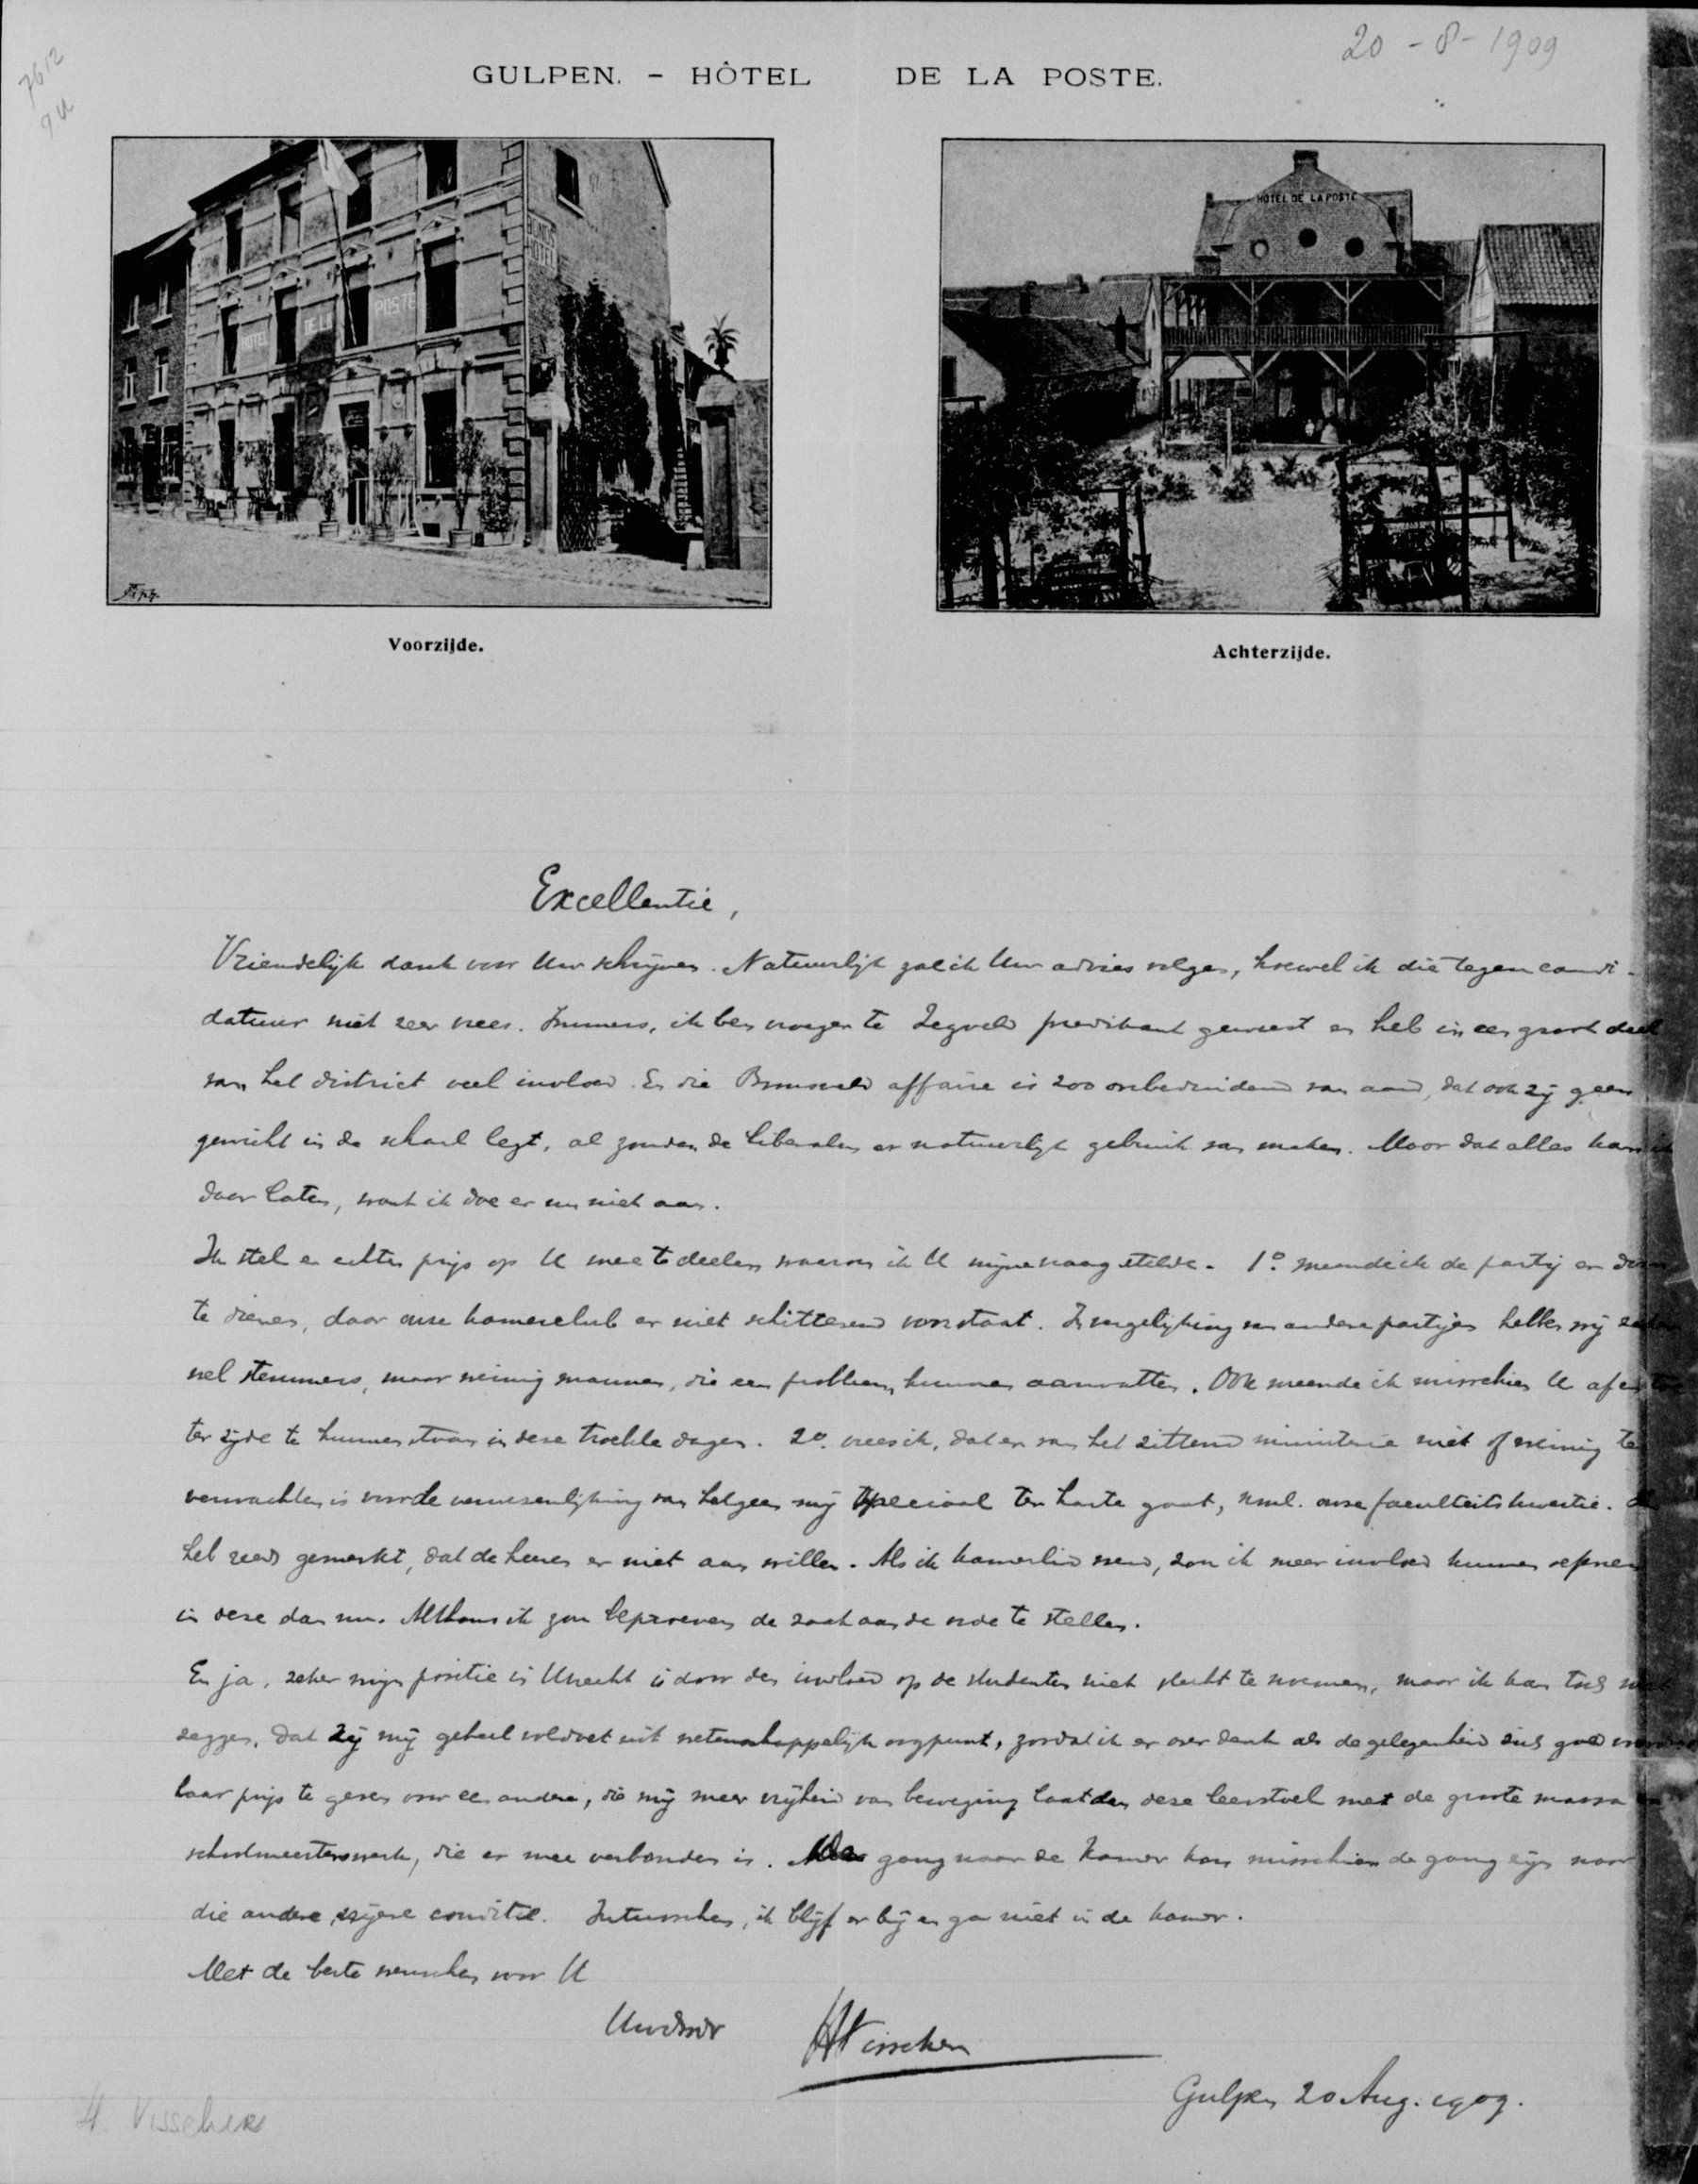 20-8-1909
7612
GULPEN. - HÔTEL DE LA POSTE.
HOTEL DE LA POSTE
BONDS HOTEL
HOTEL DE LA POSTE
Voorzijde.
Achterzijde.
Excellentie,
Vriendelijk dank voor Uw schrijven. Natuurlijk zal ik Uw advies volgen, hoewel ik die tegencandi-
datuur niet zeer vrees. Immers, ik ben vroeger te Zegveld predikant geweest en heb in een groot deel
van het district veel invloed. En die affaire is zoo onbeduidend van aard, dat ook zij geen
gewicht in de schaal legt, al zouden de liberalen er natuurlijk gebruik van maken. Maar dat alles kan ik
daar laten, want ik doe er nu niet aan.
Ik stel er echter prijs op U mee te deelen waarom ik U mijne vraag stelde. 1o. meende ik de partij er door
te dienen, daar onze kamerclub er niet schitterend voorstaat. In vergelijking van andere partijen hebben wij
wel stemmers, maar weinig mannen, die een probleem kunnen aanvatten. Ook meende ik misschien U af en toe
ter zijde te kunnen staan in deze troebele dagen. 2o. vrees ik, dat er van het zittend ministerie niet of weinig te
verwachten is voor de verwezenlijking van hetgeen mij speciaal ter harte gaat, nml. onze faculteitskwestie. Ik
heb reeds gemerkt, dat de heeren er niet aan willen. Als ik kamerlid werd, zou ik meer invloed kunnen oefenen
in deze dan nu. Althans ik zou beproeven de zaak aan de orde te stellen.
En ja, zeker mijn positie in Utrecht is door den invloed op de studenten niet slecht te noemen, maar ik kan toch niet
zeggen, dat zij mij geheel voldoet uit wetenschappelijk oogpunt, zoodat ik er over denk als de gelegenheid zich goed
haar prijs te geven voor een andere, die mij meer vrijheid van beweging laat dan deze leerstoel met de groote massa
schoolmeesterswerk, die er mee verbonden is. gang naar de Kamer kon misschien de gang zijn naar
die andere, vrijere conditie. Intusschen, ik blijf er bij en ga niet in de kamer.
Met de beste wenschen voor U
Uw dnr HVisscher
Gulpen 20 Aug. 1909.
H. Visscher